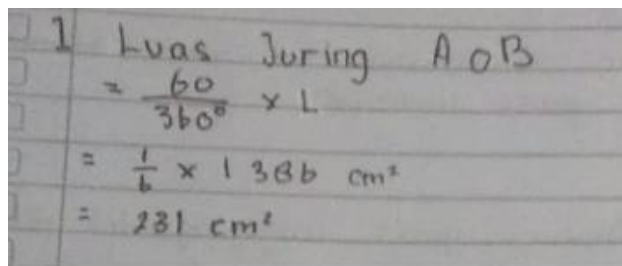 1 Luas Juring AOB
= 60/360° × L
= 1/6 × 1386 cm²
= 231 cm²